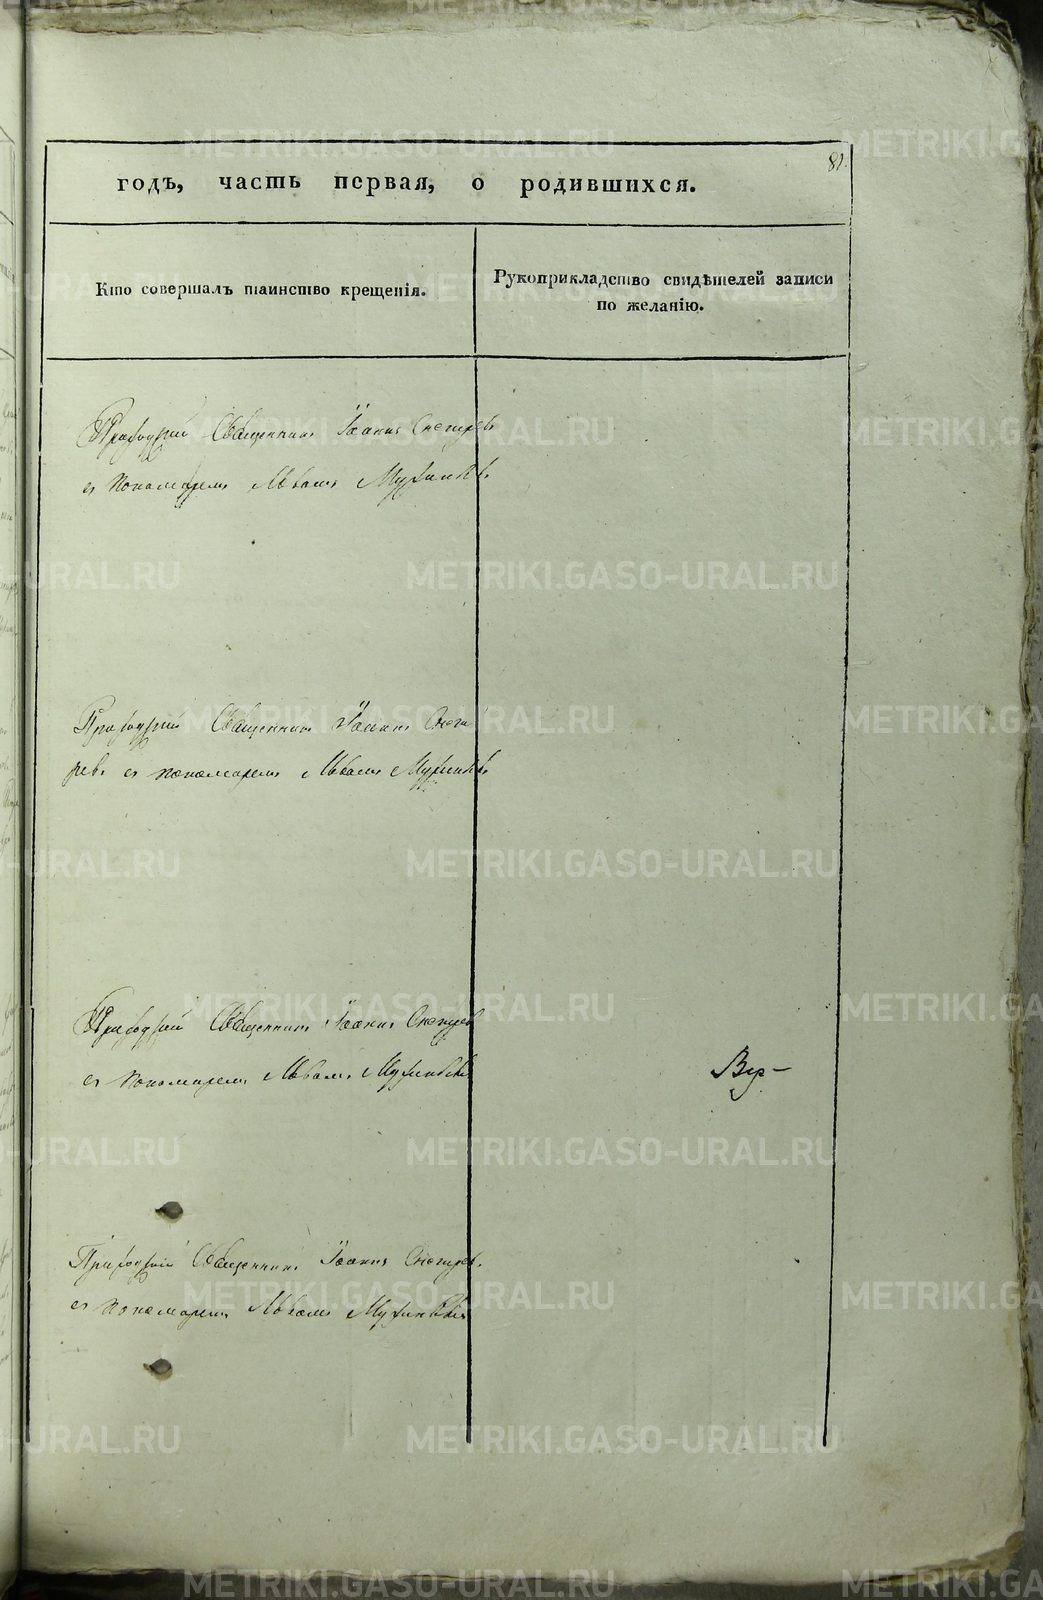 81.
годъ, часть первая, о родившихся.
Кто совершалъ таинство крещенія.
Рукоприкладство свидѣтелей записи
по желанію.
Приходскій Священникъ Іоаннъ Снегиревъ
съ пономаремъ Львомъ
Приходскій Священникъ Іоаннъ Снеги
ревъ съ пономаремъ Львомъ
Приходскій Священникъ Іоаннъ Снегиревъ
съ пономаремъ Львомъ
Приходскій Священникъ Іоаннъ Снегиревъ
съ пономаремъ Львомъ
METRIKI.GASO-URAL.RU